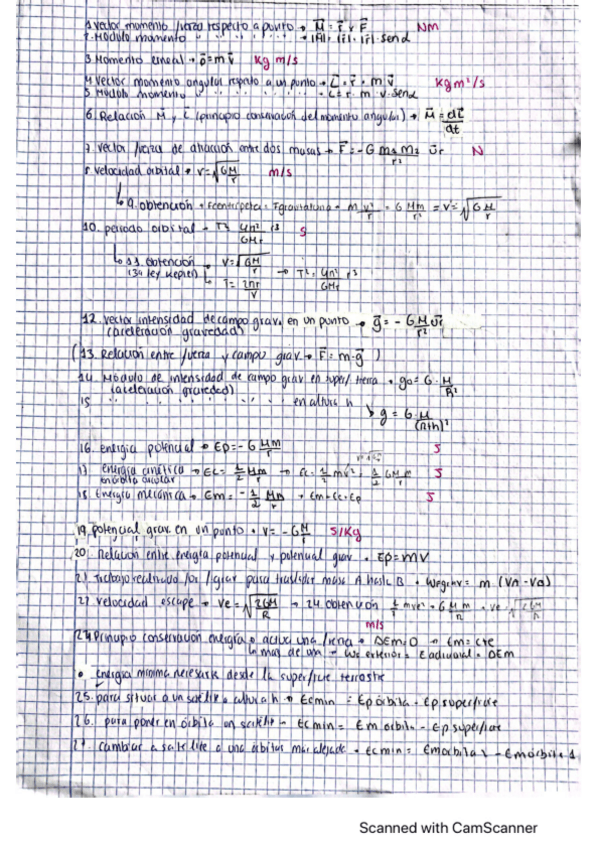 1. vector momento fuerza respecto a punto → M⃗ = r⃗ x F⃗ Nm
2. Módulo momento " " " " → |M⃗| = |r⃗| · |F⃗| · senα
3. Momento lineal → p⃗ = m v⃗ Kg m/s
4. Vector momento angular respeto a un punto → L⃗ = r⃗ · m v⃗ Kg m²/s
5. Módulo momento " " " " → L = r · m · v · senα
6. Relación M⃗ y L⃗ (principio conservación del momento angular) → M⃗ = dL⃗/dt
7. vector fuerza de atracción entre dos masas → F⃗ = -G m₁ m₂/r² u⃗r N
8. velocidad orbital → v = √GM/r m/s
9. obtención → Fcentrípeta = Fgravitatoria → m v²/r = G Mm/r² = v = √G M/r
10. periodo orbital → T² 4π²/GM r³ S
11. obtención V = √GM/r
(3ª ley Kepler) T = 2πr/V → T² = 4π²/GM r³
12. vector intensidad de campo grav. en un punto → g⃗ = - G M/r² u⃗r
(aceleración gravedad)
(13. Relación entre fuerza y campo grav. → F⃗ = m·g⃗)
14. Módulo de intensidad de campo grav en super/ tierra → g₀ = G · M/R²
(aceleración gravedad)
15 " " " " " en altura h → g = G · M/(R+h)²
16. energía potencial → Ep = -G Mm/r J
17 energía cinética → Ec = 1/2 Mm/r → Ec = 1/2 mv² = 1/2 GMm/r J
en órbita circular
18 Energía mecánica → Em = -1/2 Mm/r → Em = Ec + Ep J
19. potencial grav. en un punto → V = -G M/r J/Kg
20. Relación entre energía potencial y potencial grav. → Ep = mV
21. Trabajo realizado por f grav para trasladar masa A hasta B → Wfgrav = m (VA - VB)
22. velocidad escape → ve = √2GM/R → 24 obtención 1/2 mve² = G M m/R → ve = √2GM/R
m/s
24. Principio conservación energía → actúa una fuerza → ΔEm = 0 → Em = cte
más de una → Wf exterior = E adicional = ΔEm
• energía mínima necesaria desde la superficie terrestre
25. para situar a un satélite a altura h → Ecmin = Ep órbita - Ep superficie
26. para poner en órbita un satélite → Ecmin = Em orbita - Ep superficie
27. cambiar a satélite a una órbita más alejada → Ecmin = Emórbita 2 - Emórbita 1
Scanned with CamScanner